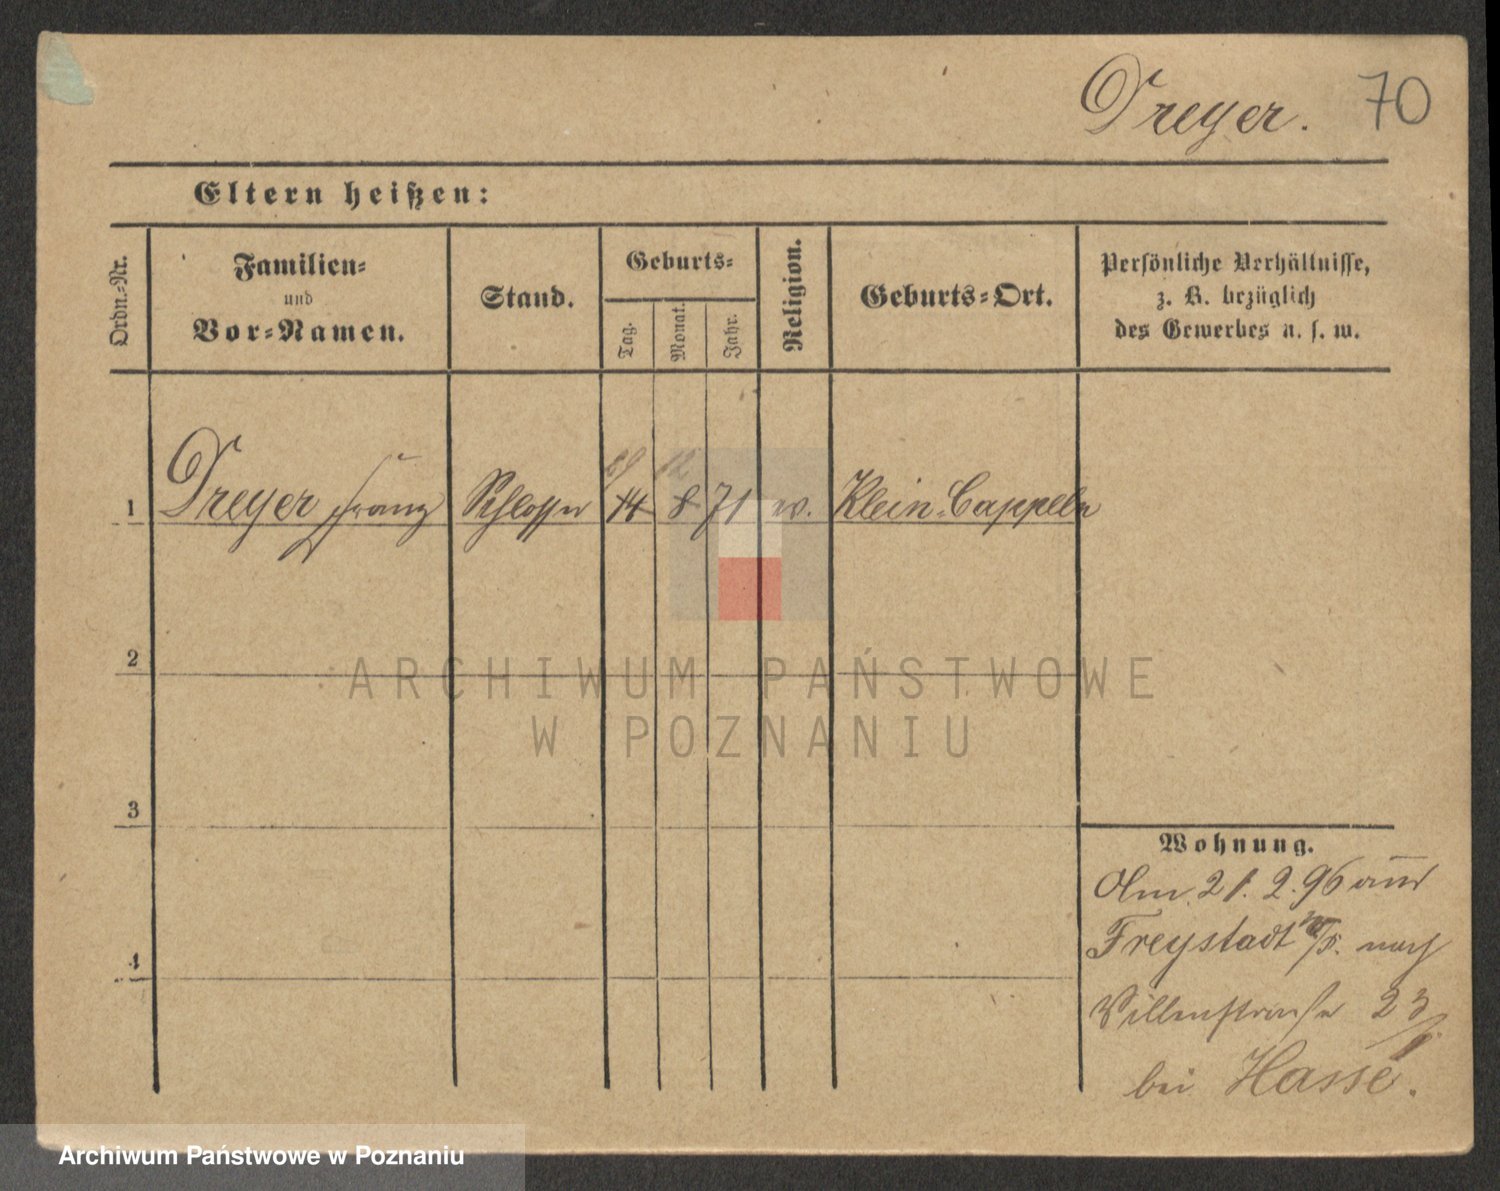 Dreyer. 70
Eltern heißen:
Ordn.-Nr.
Familien-
und
Vor-Namen.
Stand.
Geburts-
Tag.
Monat.
Jahr.
Religion.
Geburts-Ort.
Persönliche Verhältnisse,
z. B. bezüglich
des Gewerbes u. s. w.
12
1 Dreyer Franz Schlosser 14 8 71 w. Klein-Cappeln
2
ARCHIWUM PAŃSTWOWE
W POZNANIU
3
4
Wohnung.
Am 21. 2. 96 aus
Freystadt nach
Villenstrasse 23
bei Hasse.
Archiwum Państwowe w Poznaniu